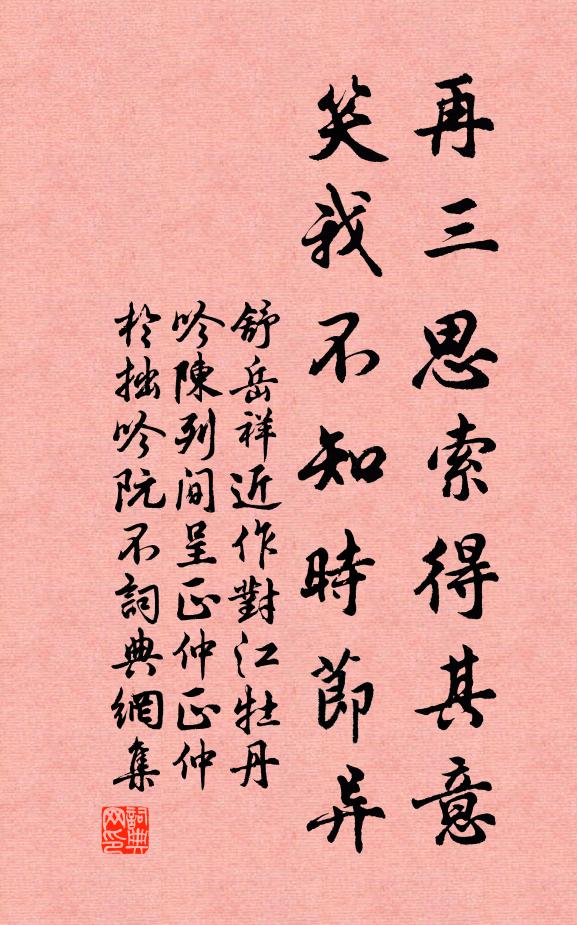 再三思索得其意
笑我不知時節异
舒岳祥近作對江牡丹
吟陳列間呈正仲正仲
於拙吟阮不詞典網集
詞典
网印